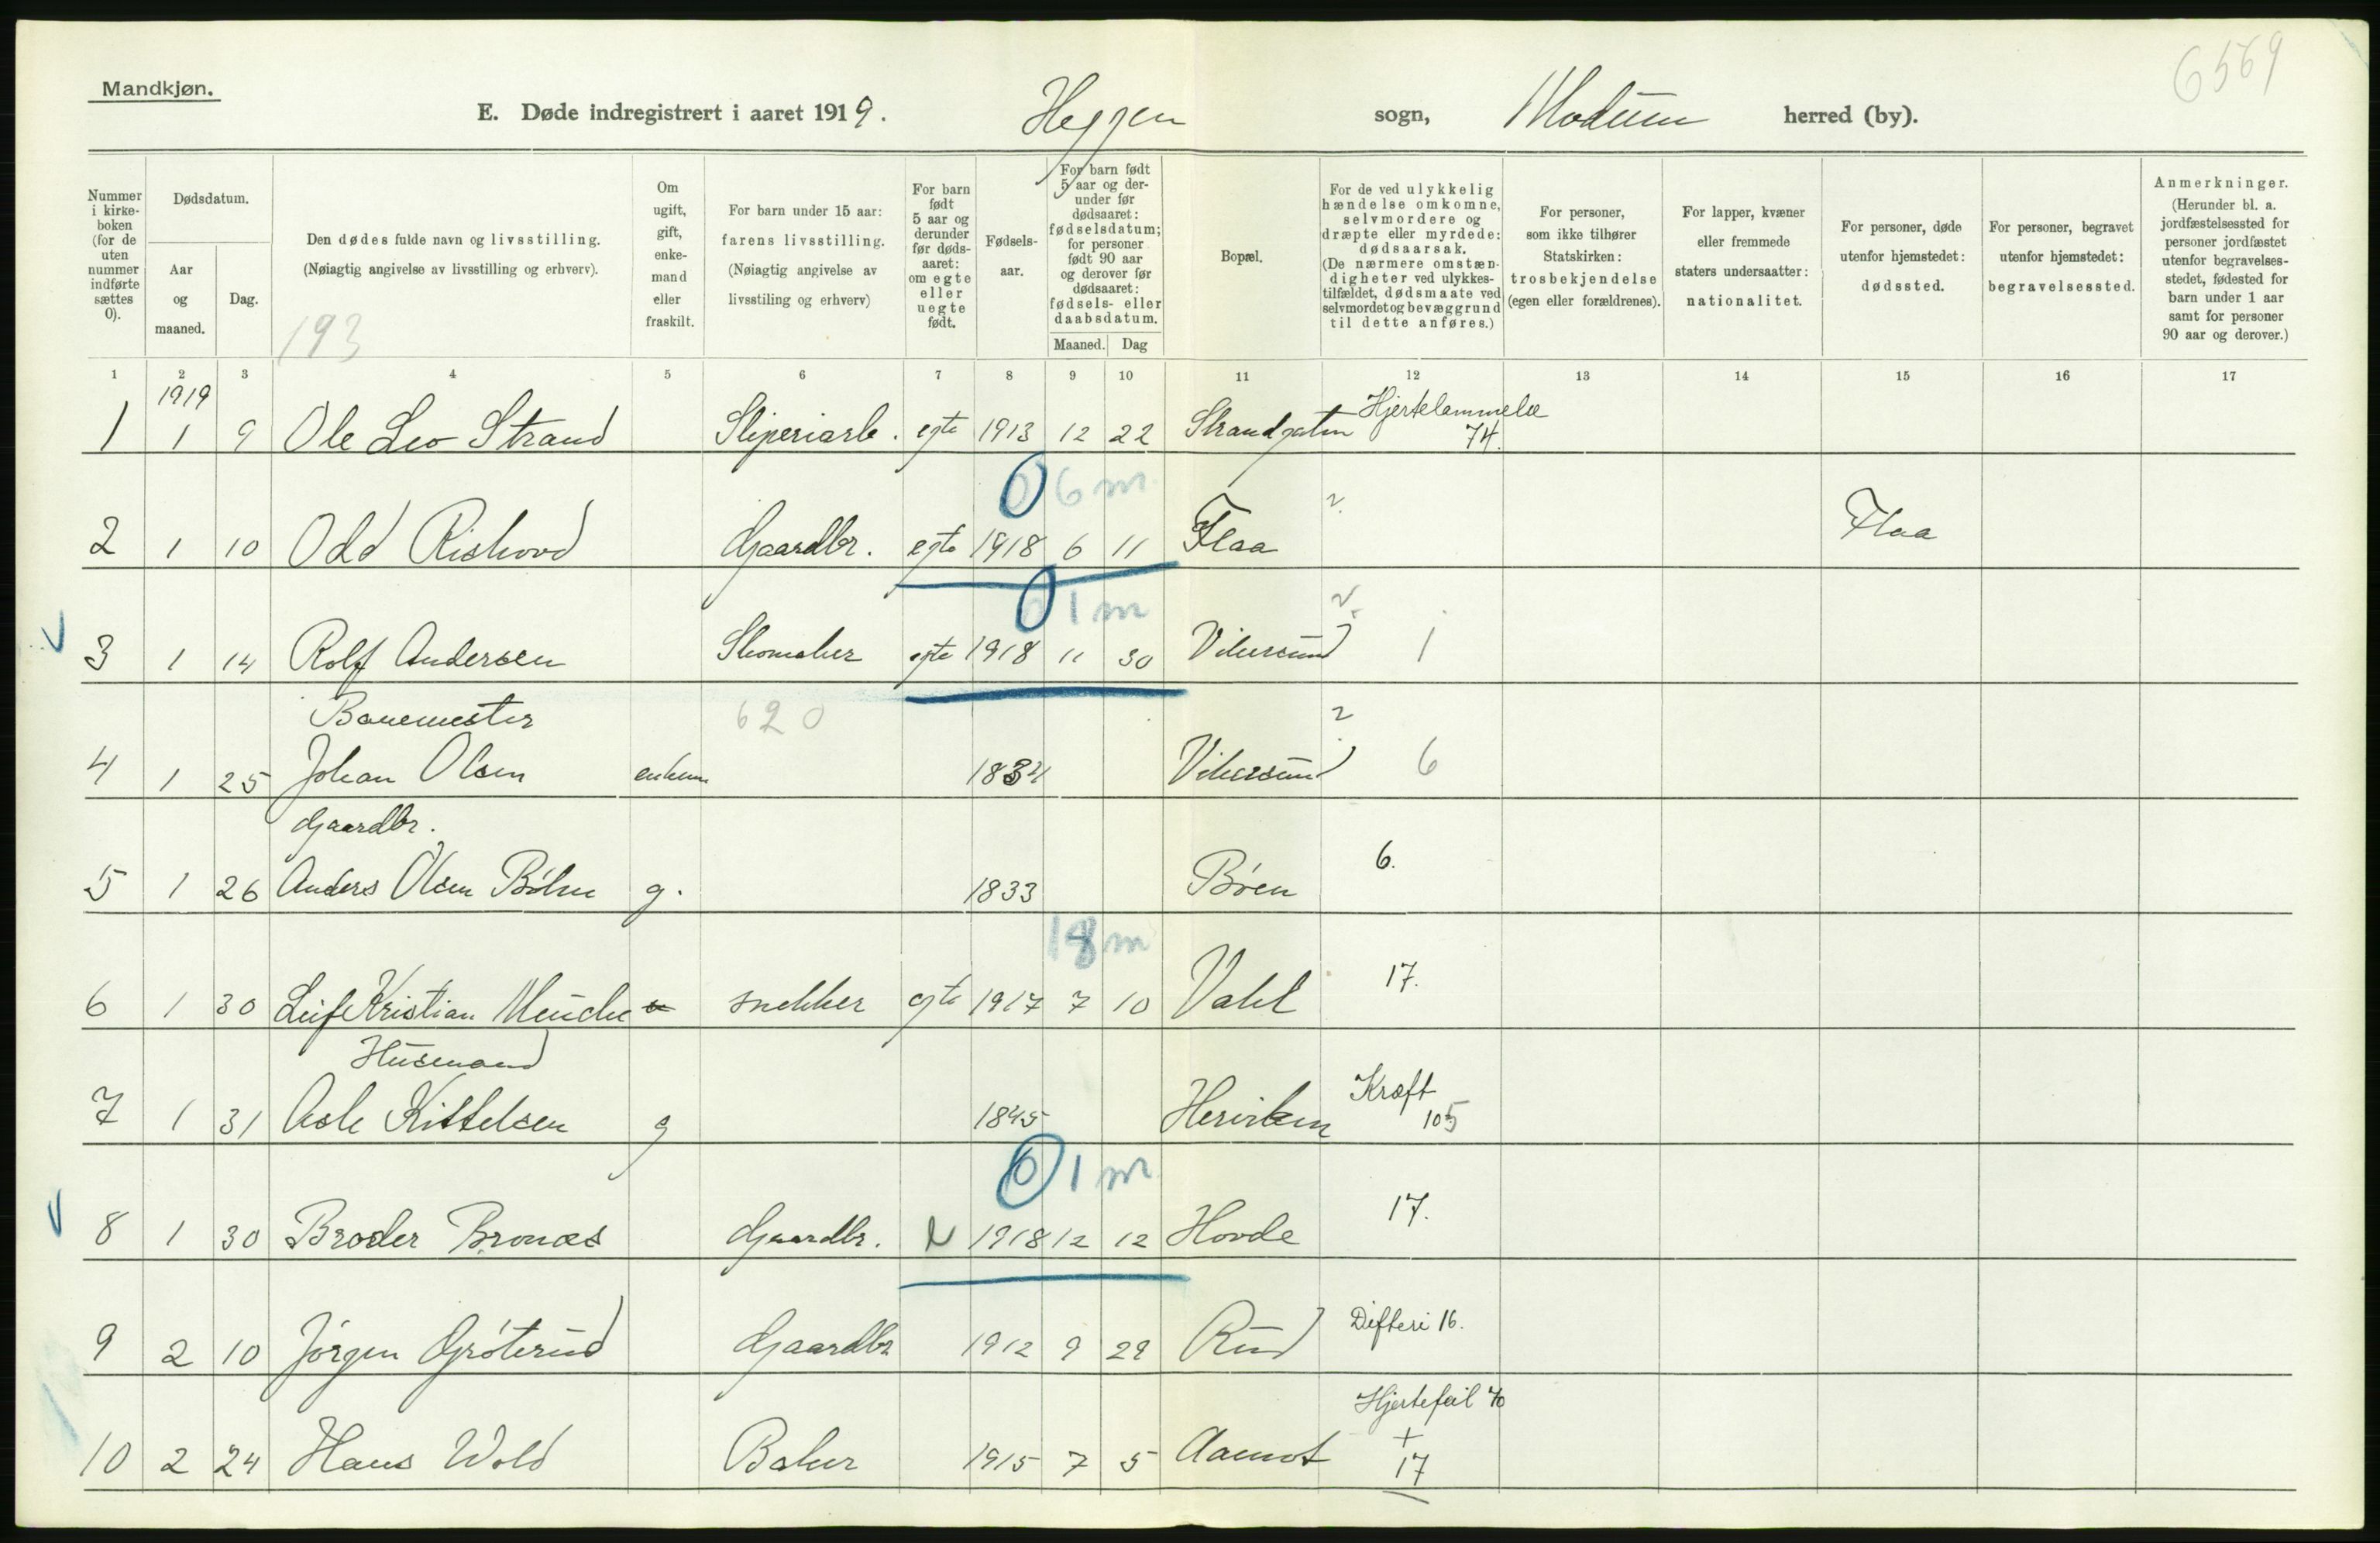 6569
Mandkjøn.
E. Døde indregistrert i aaret 1919. Heggen sogn, Modum herred (by).
Nummer i kirke-boken (for de uten nummer indførte sættes 0).
Dødsdatum.
Aar og maaned.
Dag.
Den dødes fulde navn og livsstilling.
(Nøiagtig angivelse av livsstilling og erhverv).
193
Om ugift, gift, enke-mand eller fraskilt.
For barn under 15 aar: farens livsstilling.
(Nøiagtig angivelse av livsstiling og erhverv)
For barn født 5 aar og derunder før døds-aaret: om egte eller uegte født.
Fødsels-aar.
For barn født 5 aar og der-under før dødsaaret: fødselsdatum; for personer født 90 aar og derover før dødsaaret: fødsels- eller daabsdatum.
Maaned. Dag
Bopæl.
For de ved ulykkelig hændelse omkomne, selvmordere og dræpte eller myrdede: dødsaarsak.
(De nærmere omstæn-digheter ved ulykkes-tilfældet, dødsmaate ved selvmordet og bevæggrund til dette anføres.)
For personer, som ikke tilhører Statskirken: trosbekjendelse (egen eller forældrenes).
For lapper, kvæner eller fremmede staters undersaatter: nationalitet.
For personer, døde utenfor hjemstedet: dødssted.
For personer, begravet utenfor hjemstedet: begravelsessted.
Anmerkninger.
(Herunder bl. a. jordfæstelsessted for personer jordfæstet utenfor begravelses-stedet, fødested for barn under 1 aar samt for personer 90 aar og derover.)
1 2 3 4 5 6 7 8 9 10 11 12 13 14 15 16 17
1919 Hjertelammelse
1 1 9 Ole Leo Strand Sliperiarb. egte 1913 12 22 Strandgaten 74.
0 6 m ?
2 1 10 Odd Rishovd Gaardbr. egte 1918 6 11 Flaa Flaa
0 1 m ?
3 1 14 Rolf Andersen Skomaker egte 1918 11 30 Vikersund 1
Banemester 620 ?
4 1 25 Johan Olsen enkem 1834 Vikersund 6
Gaardbr.
5 1 26 Anders Olsen Böhn g. 1833 Bøen 6.
18 m
6 1 30 Leif Kristian Menche snekker egte 1917 7 10 Vahl 17.
Husmand Kræft
7 1 31 Asle Kittelsen g 1845 105
0 1 m
8 1 30 Broder Bronæs Gaardbr. 1918 12 12 Hovde 17.
9 2 10 Jörgen Gröterud Gaardbr 1912 9 29 Rud Difteri 16.
Hjertefeil 70
10 2 24 Hans Wold Baker 1915 7 5 Aamot + 17